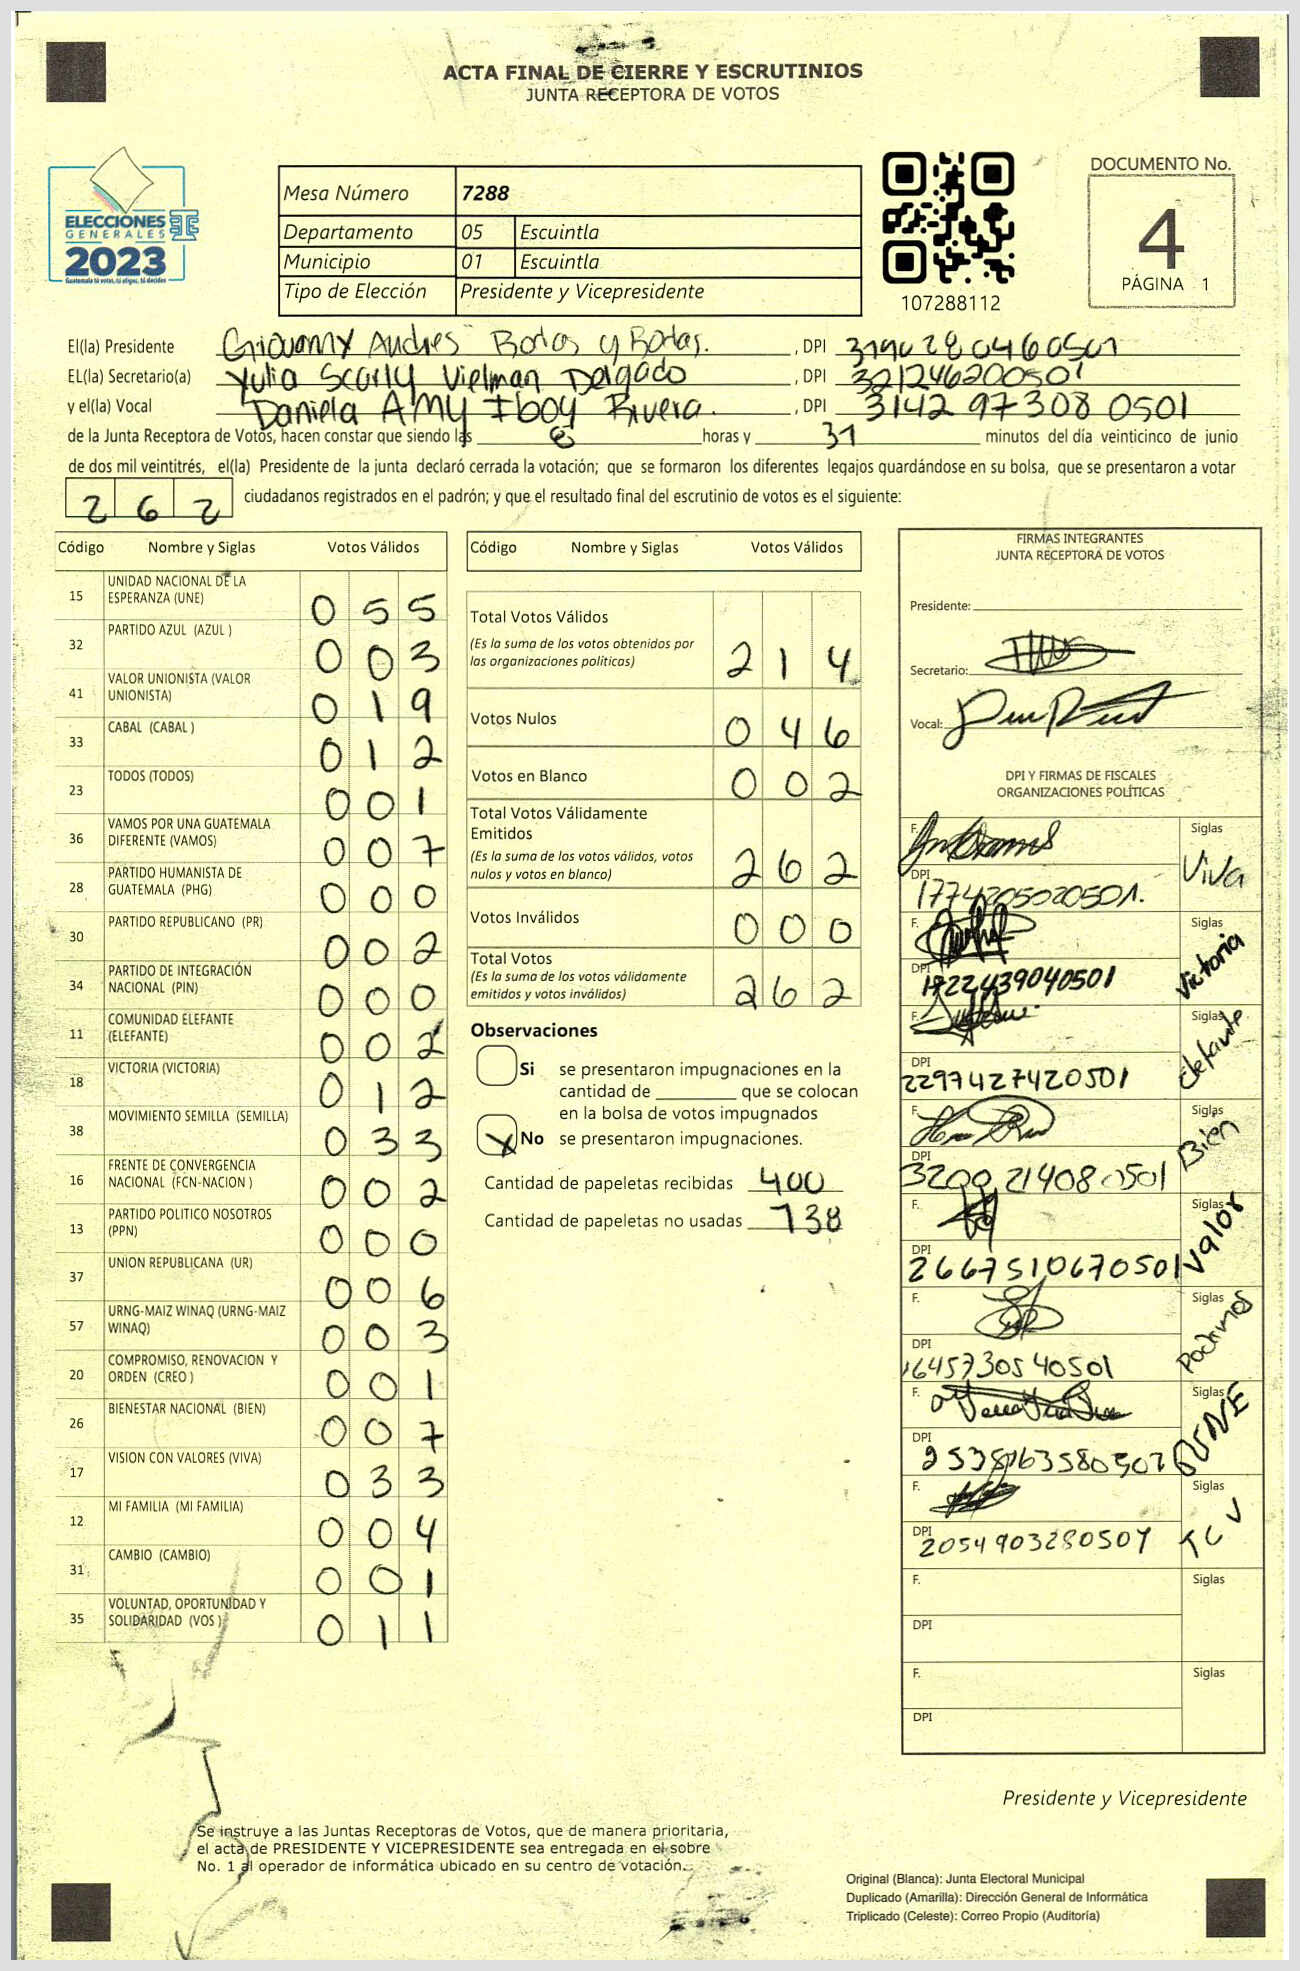 ACTA FINAL DE CIERRE Y ESCRUTINIOS
JUNTA RECEPTORA DE VOTOS
ELECCIONES
GENERALES
2023
Guatemala tú votas, tú eliges, tú decides
Mesa Número 7288
Departamento 05 Escuintla
Municipio 01 Escuintla
Tipo de Elección Presidente y Vicepresidente
107288112
DOCUMENTO No.
4
PÁGINA 1
El(la) Presidente Giovanny Andres Botas y Botas. , DPI 3190280460501
EL(la) Secretario(a) Yulia Scarly Vielman Delgado , DPI 321246200501
y el(la) Vocal Daniela Amy Iboy Rivera. , DPI 3142 97308 0501
de la Junta Receptora de Votos, hacen constar que siendo las 6 horas y 31 minutos del día veinticinco de junio
de dos mil veintitrés, el(la) Presidente de la junta declaró cerrada la votación; que se formaron los diferentes legajos guardándose en su bolsa, que se presentaron a votar
262 ciudadanos registrados en el padrón; y que el resultado final del escrutinio de votos es el siguiente:
Código Nombre y Siglas Votos Válidos
15 UNIDAD NACIONAL DE LA ESPERANZA (UNE) 055
32 PARTIDO AZUL (AZUL ) 003
41 VALOR UNIONISTA (VALOR UNIONISTA) 019
33 CABAL (CABAL ) 012
23 TODOS (TODOS) 001
36 VAMOS POR UNA GUATEMALA DIFERENTE (VAMOS) 007
28 PARTIDO HUMANISTA DE GUATEMALA (PHG) 000
30 PARTIDO REPUBLICANO (PR) 002
34 PARTIDO DE INTEGRACIÓN NACIONAL (PIN) 000
11 COMUNIDAD ELEFANTE (ELEFANTE) 002
18 VICTORIA (VICTORIA) 012
38 MOVIMIENTO SEMILLA (SEMILLA) 033
16 FRENTE DE CONVERGENCIA NACIONAL (FCN-NACION ) 002
13 PARTIDO POLITICO NOSOTROS (PPN) 000
37 UNION REPUBLICANA (UR) 006
57 URNG-MAIZ WINAQ (URNG-MAIZ WINAQ) 003
20 COMPROMISO, RENOVACION Y ORDEN (CREO ) 001
26 BIENESTAR NACIONAL (BIEN) 007
17 VISION CON VALORES (VIVA) 033
12 MI FAMILIA (MI FAMILIA) 004
31 CAMBIO (CAMBIO) 001
35 VOLUNTAD, OPORTUNIDAD Y SOLIDARIDAD (VOS ) 011
Código Nombre y Siglas Votos Válidos
Total Votos Válidos
(Es la suma de los votos obtenidos por
las organizaciones politicas) 214
Votos Nulos 046
Votos en Blanco 002
Total Votos Válidamente
Emitidos
(Es la suma de los votos válidos, votos
nulos y votos en blanco) 262
Votos Inválidos 000
Total Votos
(Es la suma de los votos válidamente
emitidos y votos inválidos) 262
Observaciones
Si se presentaron impugnaciones en la
cantidad de ________ que se colocan
en la bolsa de votos impugnados
X No se presentaron impugnaciones.
Cantidad de papeletas recibidas 400
Cantidad de papeletas no usadas 138
FIRMAS INTEGRANTES
JUNTA RECEPTORA DE VOTOS
Presidente:
Secretario:
Vocal:
DPI Y FIRMAS DE FISCALES
ORGANIZACIONES POLÍTICAS
F. Siglas
DPI 1774205020501. Viva
F. Siglas
DPI 1722439040501 Victoria
F. Siglas
DPI 2297427420501 elefante
F. Siglas
DPI 3200 21408 0501 Bien
F. Siglas
DPI 2667510670501 Valor
F. Siglas
DPI 1645730540501 Podemos
F. Siglas
DPI UNE
F. Siglas
DPI 2054903280501
F. Siglas
DPI
F. Siglas
DPI
Presidente y Vicepresidente
Se instruye a las Juntas Receptoras de Votos, que de manera prioritaria,
el acta de PRESIDENTE Y VICEPRESIDENTE sea entregada en el sobre
No. 1 al operador de informática ubicado en su centro de votación.
Original (Blanca): Junta Electoral Municipal
Duplicado (Amarilla): Dirección General de Informática
Triplicado (Celeste): Correo Propio (Auditoría)